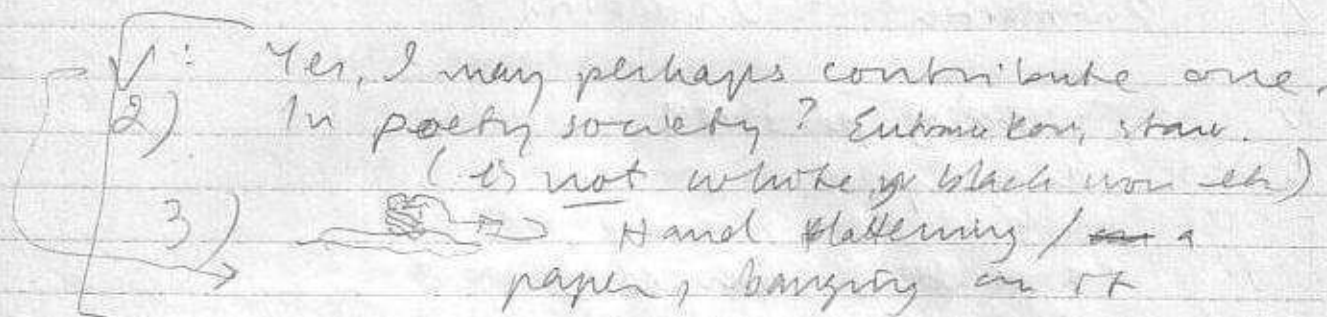 V: Yes, I may perhaps contribute one.
2) In poetry society? stau.
(is not white, black nor)
3) Hand flattening / a
paper, banging on it